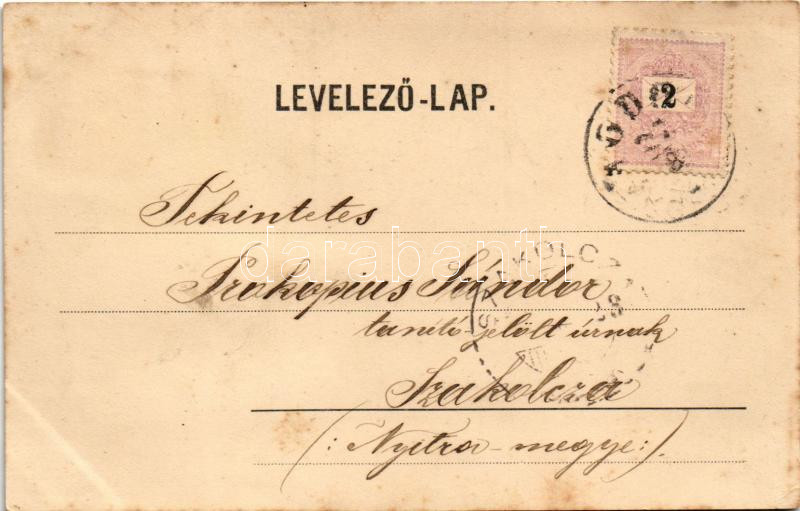 LEVELEZŐ-LAP.
2
Tekintetes
Prokopius Sándor
tanító-jelölt úrnak
Szakolcza
(: Nyitra-megye :)
darabanth
SZAKOLCZA